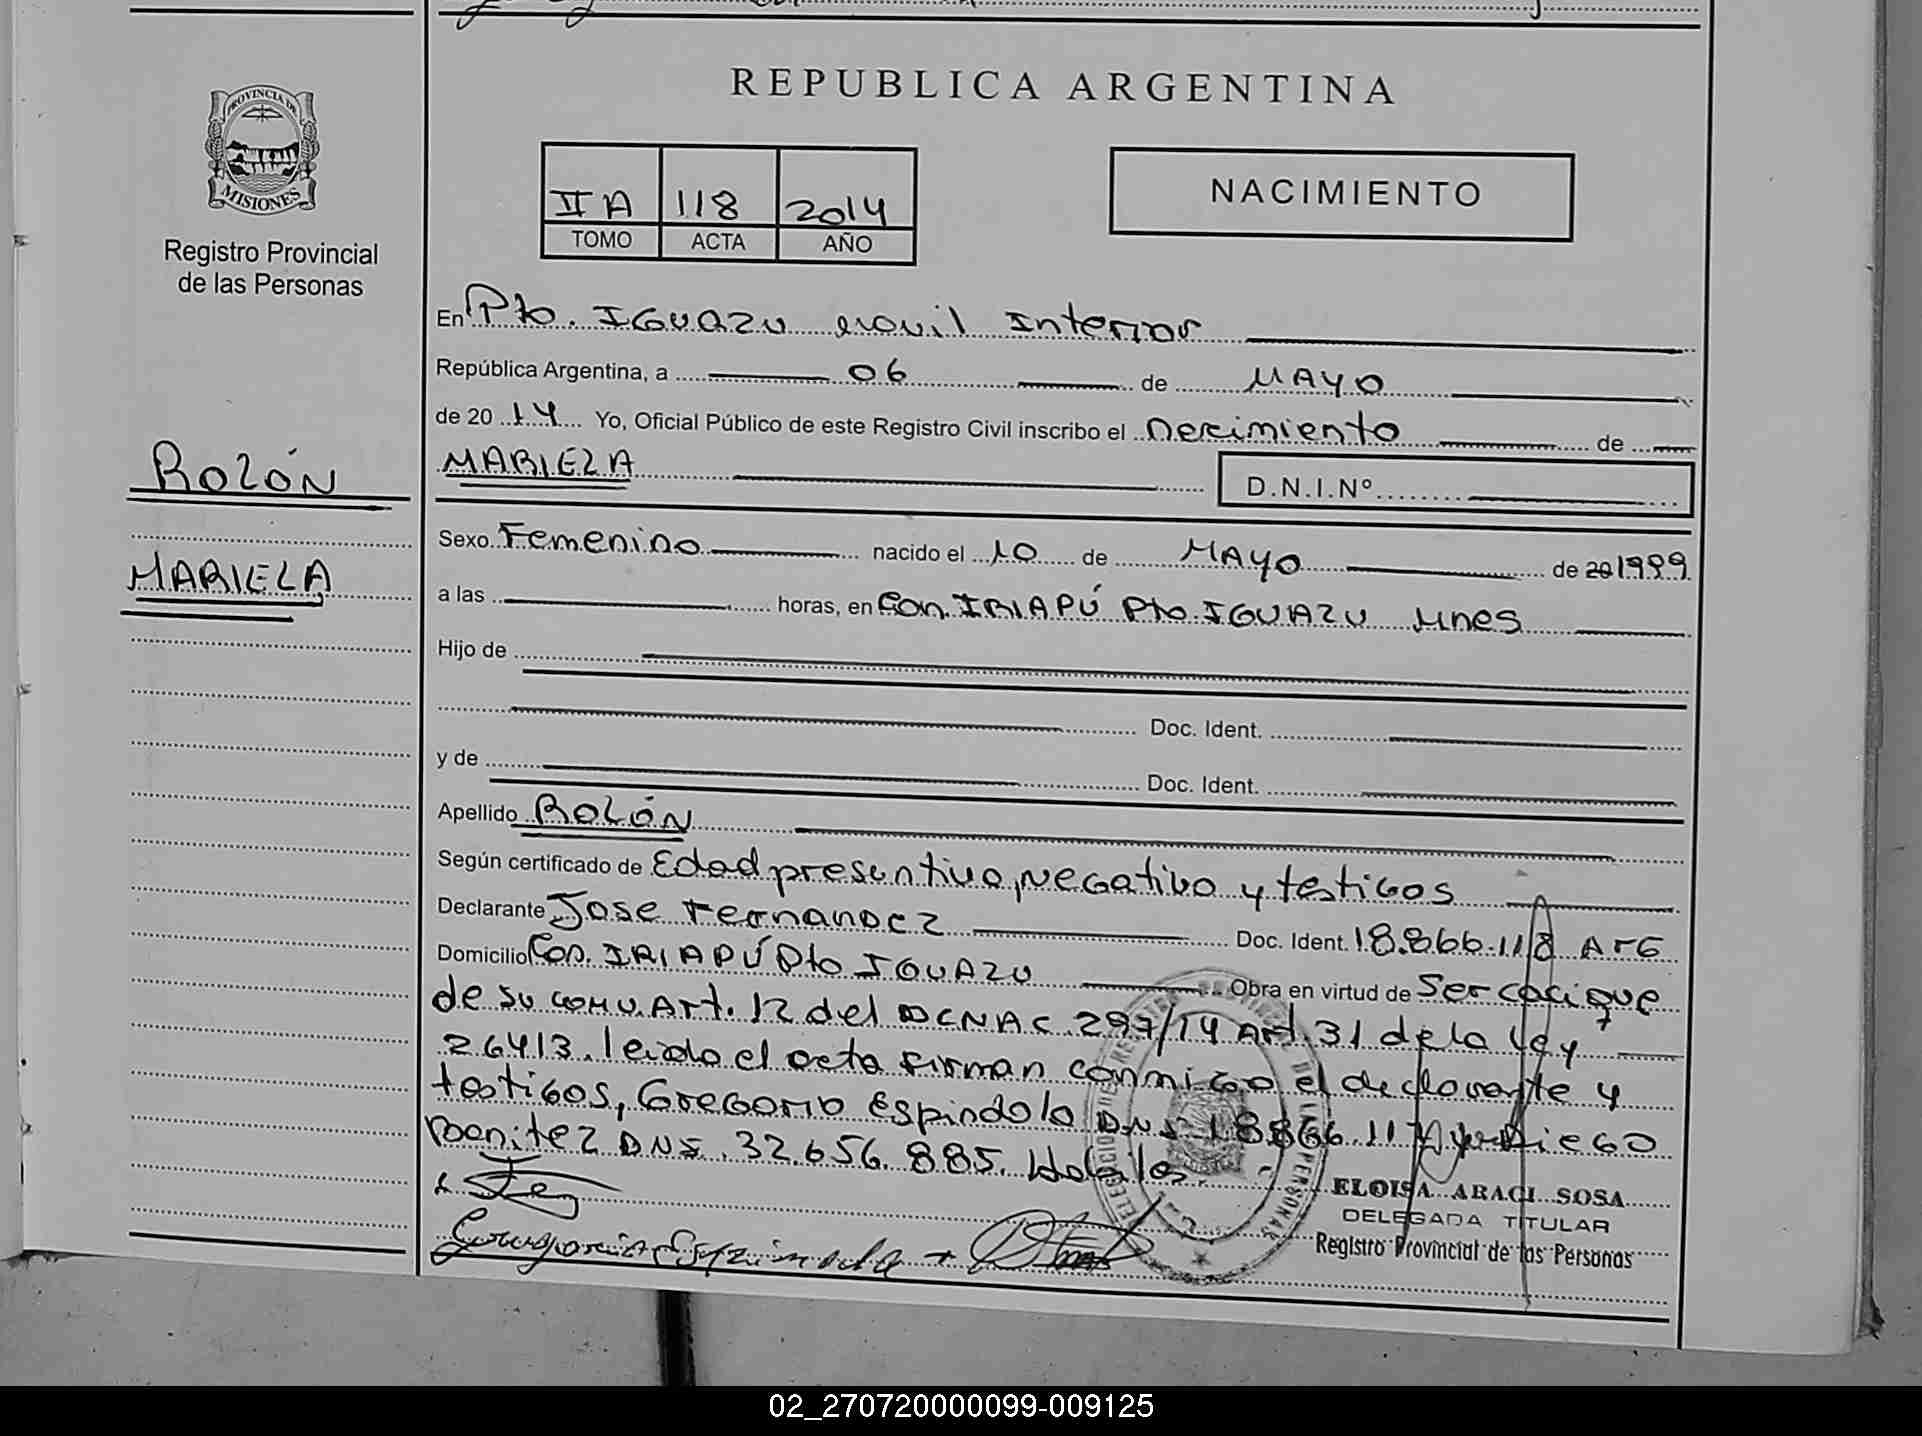 REPUBLICA ARGENTINA
PROVINCIA DE
MISIONES
Registro Provincial
de las Personas
II A 118 2014
TOMO ACTA AÑO
NACIMIENTO
En Pto. IGUAZU movil Interior
República Argentina, a 06 de MAYO
de 20 14 Yo, Oficial Público de este Registro Civil inscribo el Nacimiento de
MARIELA D.N.I.Nº
ROLÓN
MARIELA
Sexo Femenino nacido el 10 de MAYO de 20 1999
a las horas, en Com. IRIAPÚ Pto. IGUAZU Mnes
Hijo de
Doc. Ident.
y de Doc. Ident.
Apellido ROLÓN
Según certificado de Edad presuntiva, negativo y testigos
Declarante Jose Fernandez Doc. Ident. 18.866.118 ArG
Domicilio Com. IRIAPÚ Pto IGUAZU Obra en virtud de Ser cacique
de su comu. Art. 12 del DCNAC 297/14 Art. 31 de la Ley
26413. leida el acta firman conmigo el declarante y
testigos, Gregorio Espindola DNI 18866.11 y Diego
Benitez DNI. 32.656.885.
ELOISA ARACI SOSA
DELEGADA TITULAR
Registro Provincial de las Personas
02_270720000099-009125